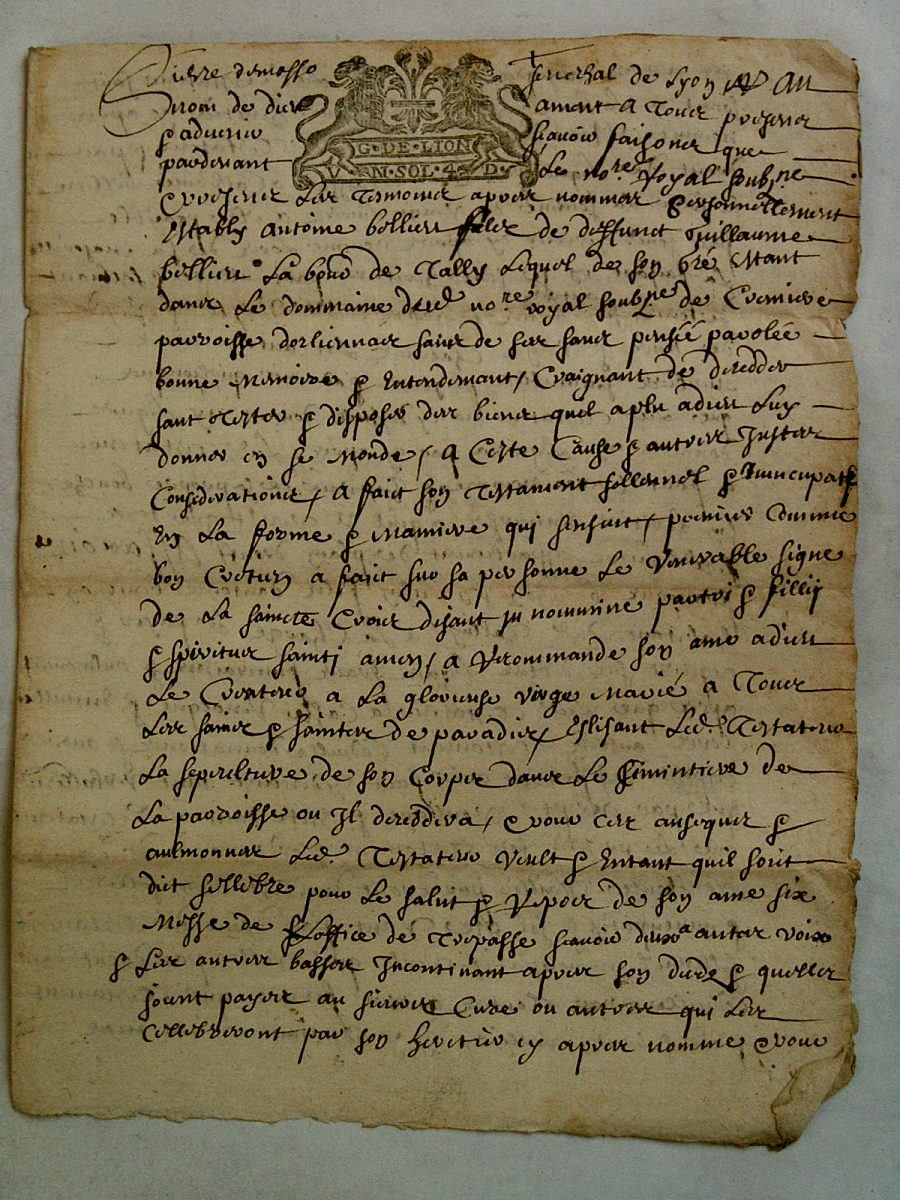 Pierre demosso senechal de Lyon Au
nom de dieu amont A Tous presens
& advenir scavoir faisons que
G·DE·LION
VN·SOL·4·D·
pardevant Le nore Royal soubzne
& presens Les Temoins apres nommes personnellement
Estably antoine bellieu filz de deffunct Guillaume
bellieu La boue de Tally Lequel de son gré Estant
dans Le dommaine dud nore royal soubzne de Cremiere
parroisse dorliennas sains de ses sans pensée parolée
bonne Memoire & Entendemant, Craignant de deceddes
sans Testes & disposes des biens quil a plu a dieu Luy
donnes en se Monde, A Ceste Cause & autres Justes
Considerations, A faict son Testamant sollemnel & Nuncupatif
En La forme & Maniere qui sensuit, premier Comme
bon Cretien a faict sur sa personne Le Venerable signe
de La saincte Croix disant In nommine patri & fillij
& spiritus santi amen, A Recommande son ame a dieu
Le Createur a La glorieuse virge Marié a Tous
Les saincs & saintes de paradis, Eslisant Led. Testateur
La sepculture de son Corps dans Le Simintiere de
La parroisse ou Il deceddera, & pour ses obseques &
aulmonnes Led. Testateur Veult & Entant quil soict
dict sellebré pour Le salut & Repos de son ame six
Messe de Loffice de Trepasse scavoir deux a autes voix
& Les autres basses Incontinant apres son deces & quelles
soient payes au sieurs Cure ou autres qui Les
Cellebreront par son heretier cy apres nomme & pour